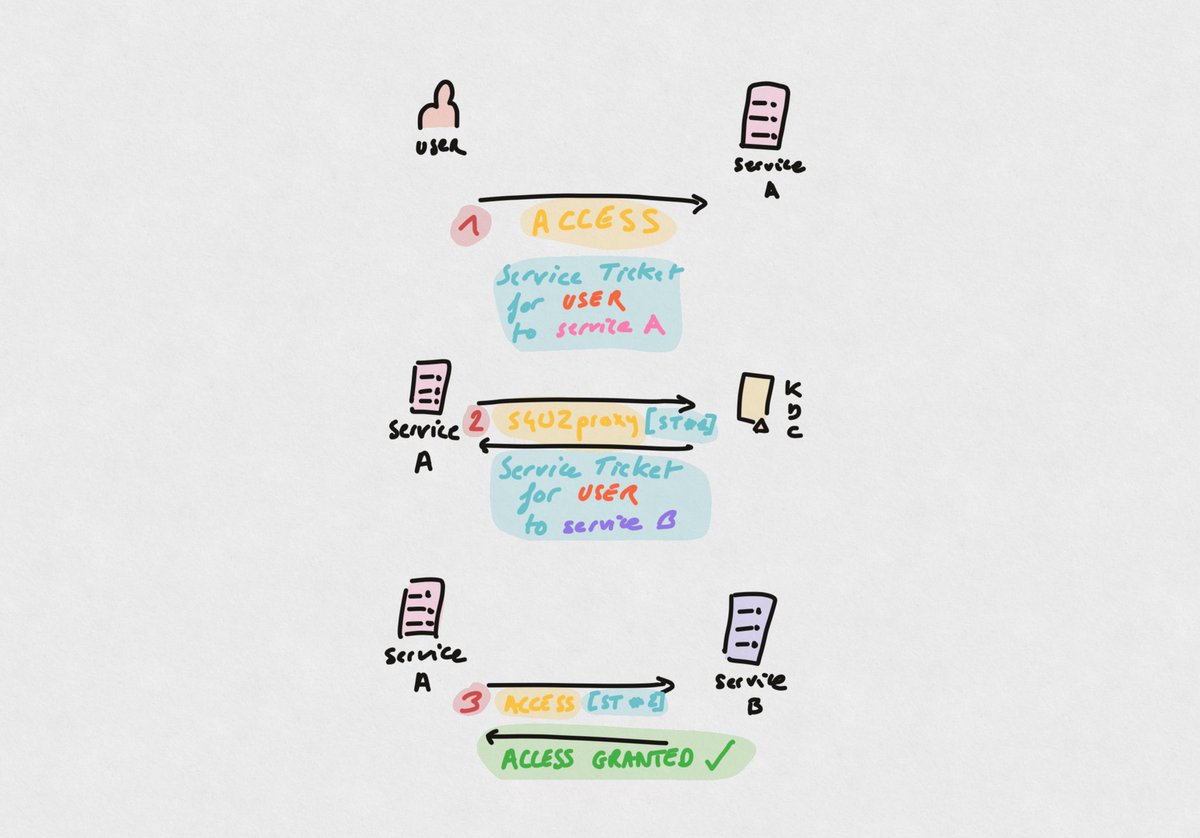 USER
service
A
1
ACCESS
Service Ticket
for USER
to service A
service
A
2
S4U2proxy [ST #1]
K
D
C
Service Ticket
for USER
to service B
service
A
service
B
3
ACCESS [ST #2]
ACCESS GRANTED ✓